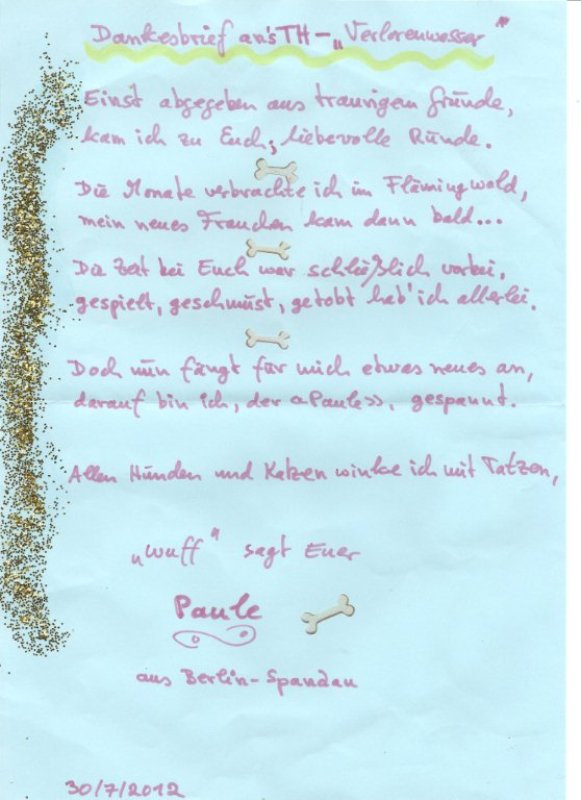 Dankesbrief an's TH - „Verlorenwasser"
Einst abgegeben aus traurigem Gründe,
kam ich zu Euch, liebevolle Runde.
Die Monate verbrachte ich im Flämingwald,
mein neues Frauchen kam dann bald...
Die Zeit bei Euch war schließlich vorbei,
gespielt, geschmust, getobt hab' ich allerlei.
Doch nun fängt für mich etwas neues an,
darauf bin ich, der «Paule», gespannt.
Allen Hunden und Katzen winke ich mit Tatzen,
„Wuff" sagt Euer
Paule
aus Berlin-Spandau
30/7/2012